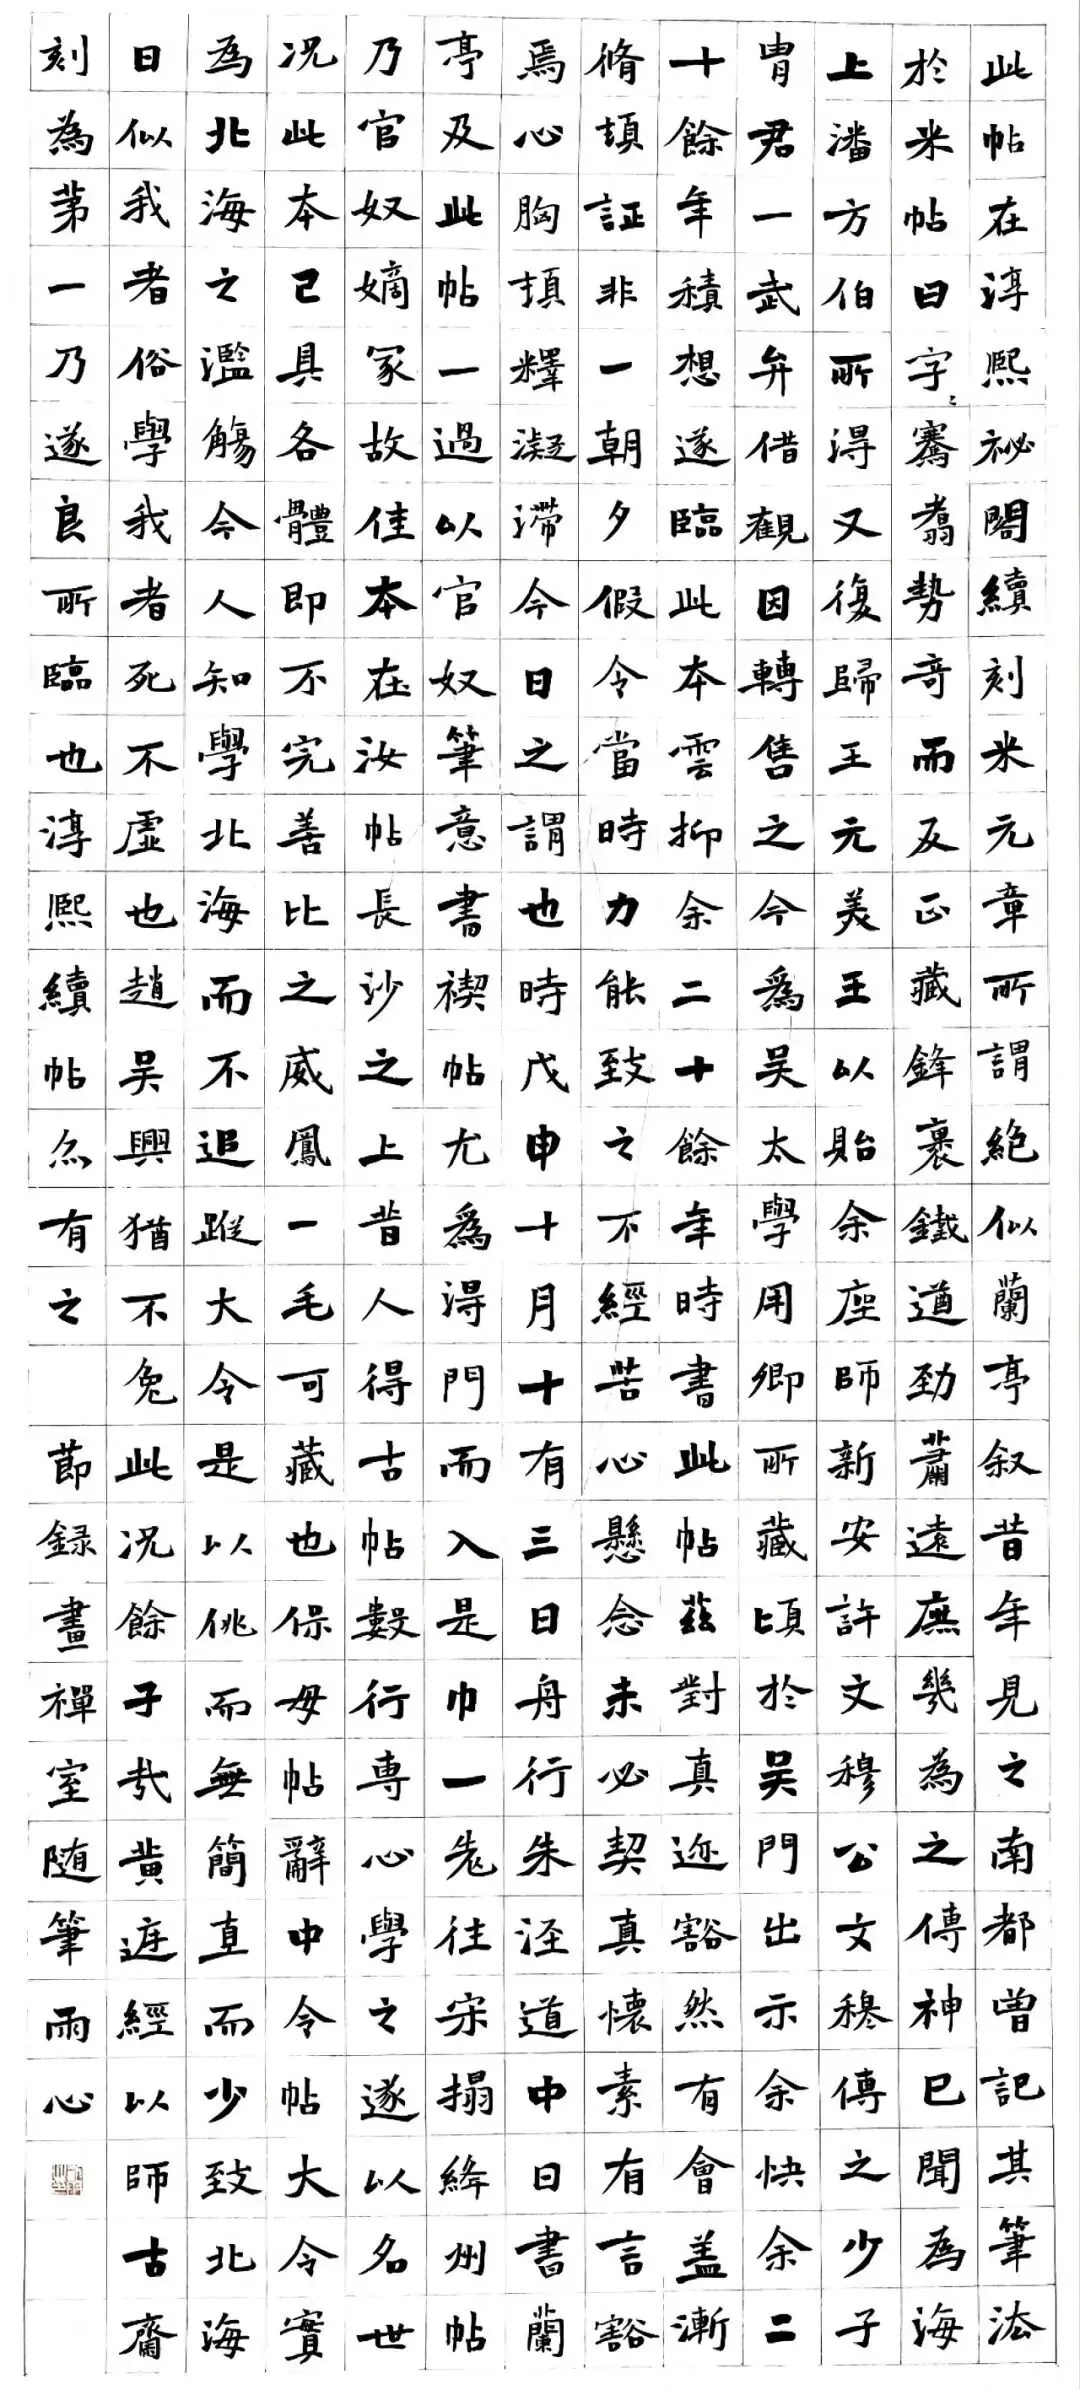 此帖在淳熙祕閣續刻米元章所謂絕似蘭亭叙昔年見之南都曾記其筆法
於米帖曰字〻騫翥勢奇而反正藏鋒裹鐵遒勁蕭遠庶幾為之傳神已聞為海
上潘方伯所得又復歸王元美王以貽余座師新安許文穆公文穆傳之少子
胄君一武弁借觀因轉售之今為吴太學用卿所藏頃於吴門出示余快余二
十餘年積想遂臨此本雲抑余二十餘年時書此帖茲對真迹豁然有會蓋漸
脩頓証非一朝夕假令當時力能致之不經苦心懸念未必契真懷素有言豁
焉心胸頓釋凝滯今日之謂也時戊申十月十有三日舟行朱涇道中日書蘭
亭及此帖一過以官奴筆意書禊帖尤為得門而入是巾一先往宋搨絳州帖
乃官奴嫡冢故佳本在汝帖長沙之上昔人得古帖數行專心學之遂以名世
况此本已具各體即不完善比之威鳳一毛可藏也保母帖辭中令帖大令實
為北海之濫觴今人知學北海而不追蹤大令是以佻而無簡直而少致北海
日似我者俗學我者死不虛也趙吴興猶不免此况餘子哉黄庭經以師古齋
刻為苐一乃遂良所臨也淳熙續帖亦有之 節録畫禪室随筆雨心